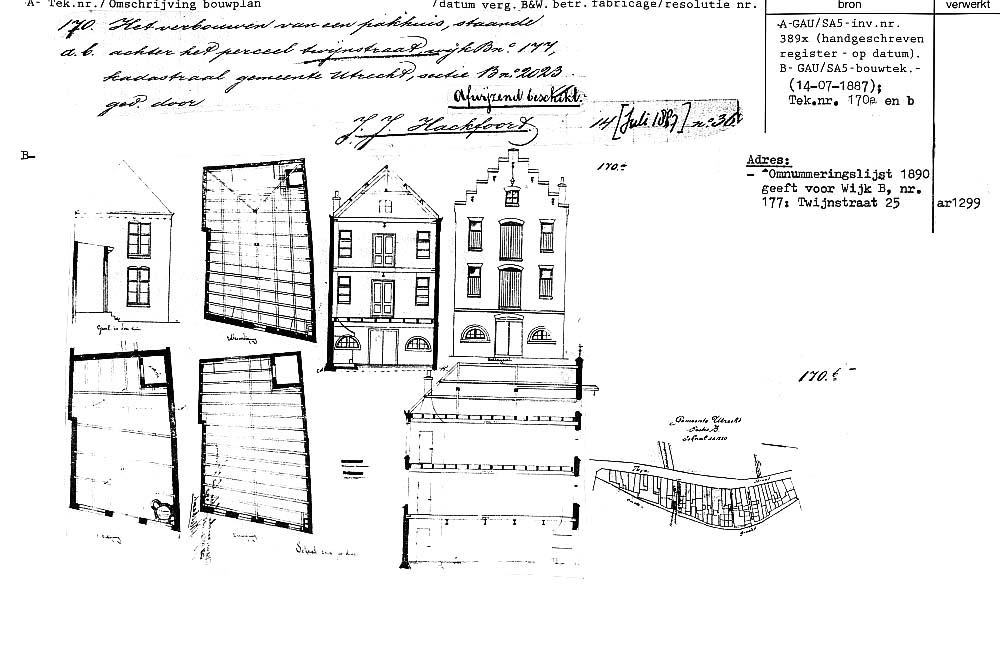 -A- Tek.nr./Omschrijving bouwplan /datum verg. B&W. betr. fabricage/resolutie nr. bron verwerkt
170. Het verbouwen van een pakhuis, staande
a.b. achter het perceel twijnstraat, wijk B nº 177,
kadastraal gemeente Utrecht, sectie B nº 2023
get. door
Afwijzend beschikt.
J. J. Hackfoort 14 [Juli 1887] nº 36
A-GAU/SA5-inv.nr.
389x (handgeschreven
register - op datum).
B- GAU/SA5-bouwtek.-
(14-07-1887);
Tek.nr. 170a en b
B-
170.
Adres:
- "Omnummeringslijst 1890
geeft voor Wijk B, nr.
177: Twijnstraat 25 ar1299
170.
Gemeente Utrecht
Sectie B